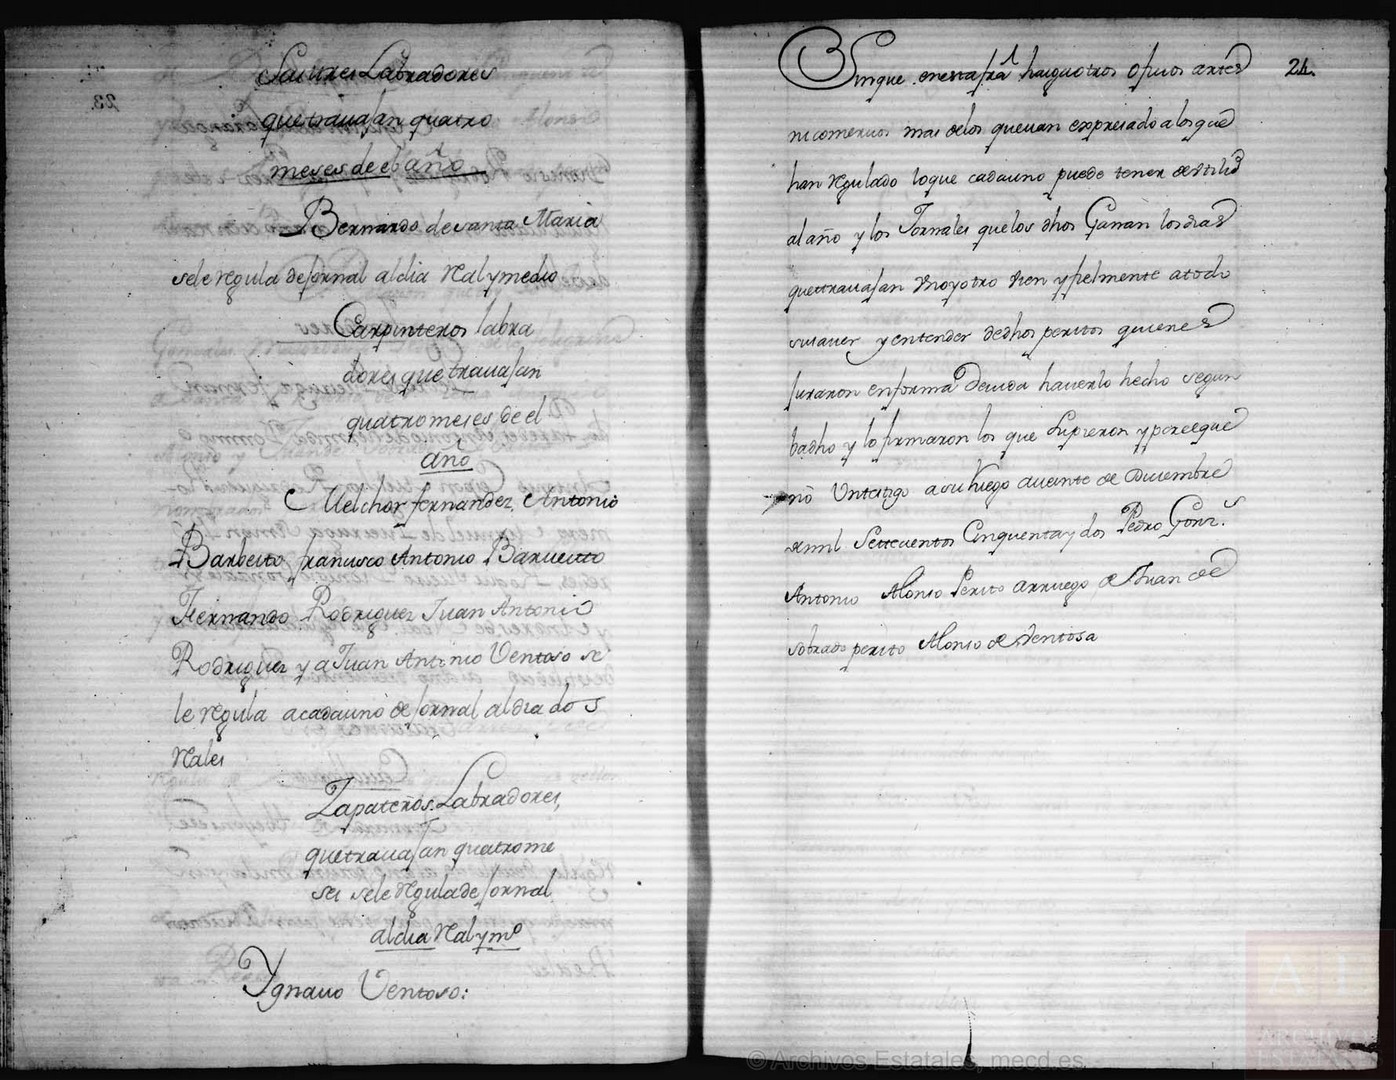 Sastres Labradores
que travajan quatro
meses de el año
Bernardo de santa Maria
se le regula de jornal al dia Real y medio
Carpinteros labra
dores que travajan
quatro meses de el
año
Melchor fernandez, Antonio
Barbeito, francisco Antonio Barveitto
Fernando Rodriguez Juan Antonio
Rodriguez y a Juan Antonio Ventoso se
le regula a cada uno de jornal al dia dos
Reales
Zapateros Labradores,
que travajan quatro me
ses se le regula de jornal
al dia Real y mº
Ygnacio Ventoso:
24.
Sin que en esta fra haiga otros oficios artes
ni comercios mas de los que van expresado a los que
han regulado lo que cada uno puede tener de utilid
al año y los Jornales que los dhos Ganan los dias
que travajan uno y otro vien y fielmente a todo
su saver y entender de dhos peritos quienes
juraron en forma devida haverlo hecho segun
ba dho y lo firmaron los que supieron y por el que
nō Un testigo a su Ruego a veinte de Diciembre
de mil Settecientos Cinquenta y dos Pedro Gonz.
Antonio Alonso Perito a rruego de Juan de
sobrado perito Alonso de Ventosa
© Archivos Estatales, mecd.es